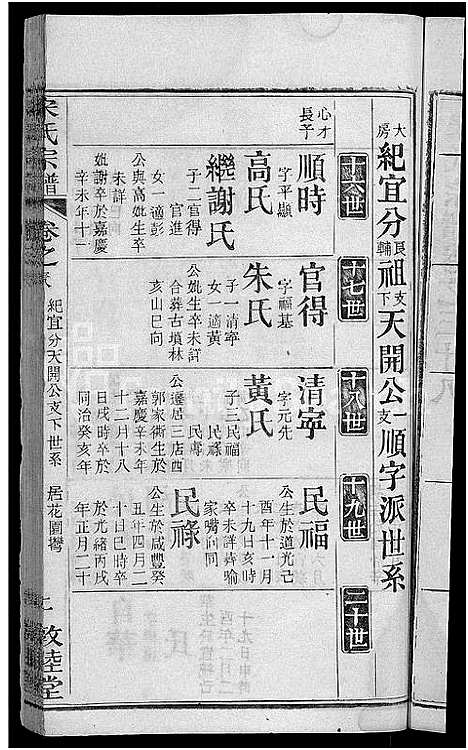 大房紀宜分良輔祖支下天開公一支順字派世系
十六世
十七世
十八世
十九世
二十世
心才長子
順時
字平顯
高氏
繼謝氏
子二官得
官進
女一適彭
公與高妣生卒
未詳
妣謝卒於嘉慶
辛未年十二
官得
字福基
朱氏
子一清寧
女一適黃
公妣生卒未訂
合葬古填林
亥山巳向
清寧
字元先
黃氏
子三民福
民祿
民壽
公遷居三店西
郭家衖生於
嘉慶辛未年
十二月十八
同治癸亥年
民福
公生於道光己
酉年十一月
十九日亥時
卒未詳葬喻
家嘴同向
民祿
公生於咸豐癸
丑年四月二
十日巳時卒
於光緒丙戌
年正月二十
宋氏宗譜
卷之
紀宜分天開公支下世系
居花園灣
敦睦堂